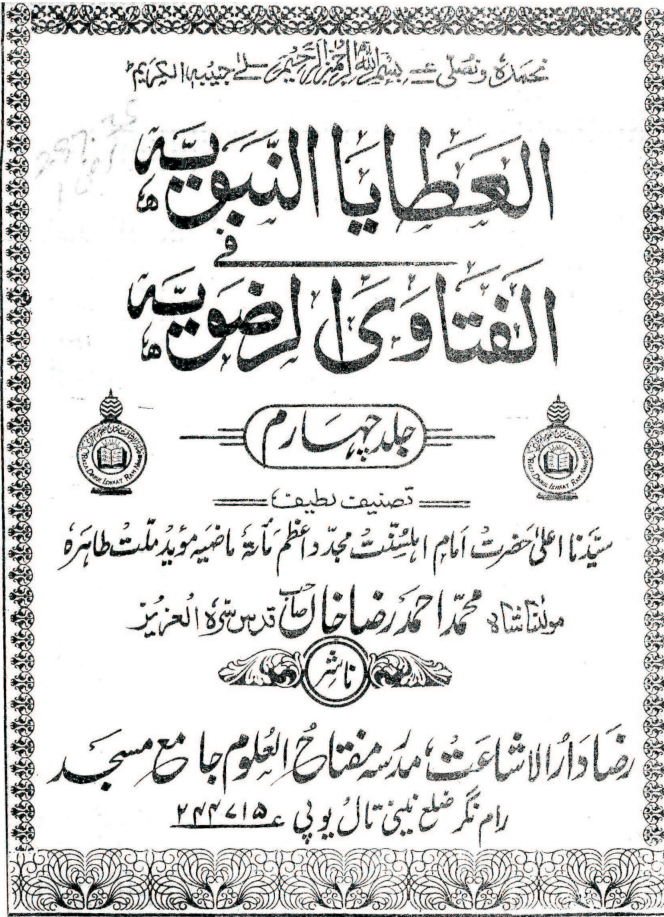 نحمدہ ونصلی علے بسم اللہ الرحمٰن الرحیم حبیبہ الکریم
297.35
العطایا النبویہ
فی
الفتاوی الرضویہ
جلد چہارم
تصنیف لطیف
سیدنا اعلیٰ حضرت امام اہلسنت مجدد اعظم مأتۃ ماضیہ مؤید ملت طاہرہ
مولٰنا شاہ محمد احمد رضا خاں صاحب قدس سرہ العزیز
ناشر
رضا دار الاشاعت، مدرسہ مفتاح العلوم جامع مسجد
رام نگر ضلع نینی تال یوپی ۲۴۴۷۱۵